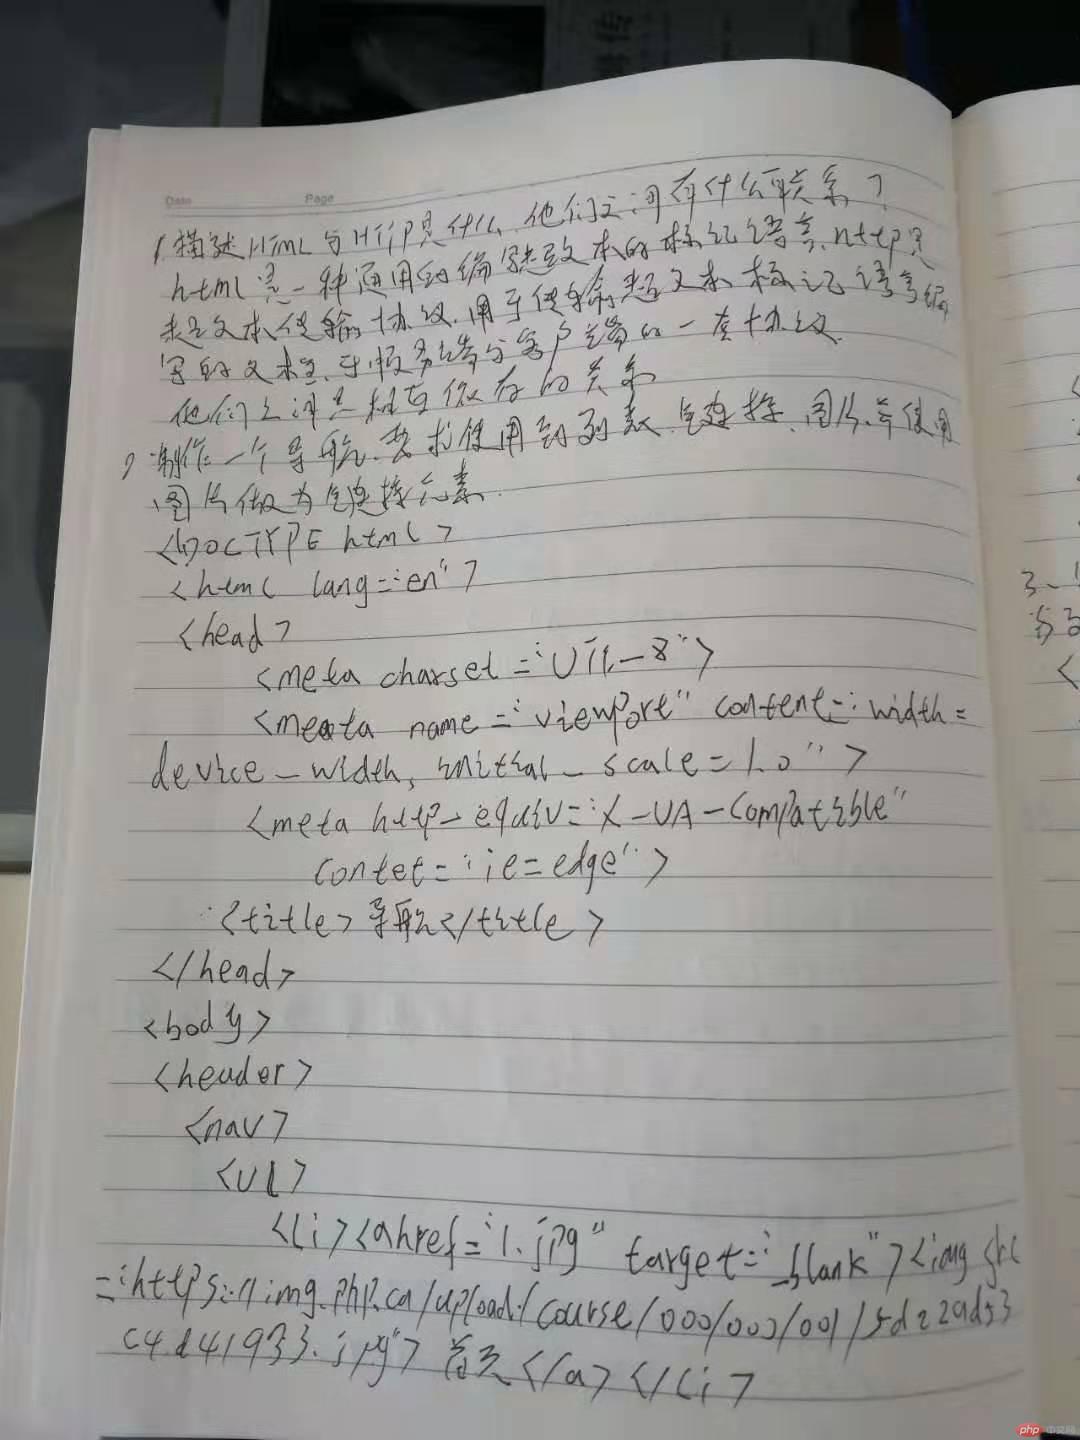 Date Page
1.描述HTML与HTTP是什么,他们之间有什么联系?
html是一种通用的编写超文本的标记语言,http是
超文本传输协议,用于传输超文本标记语言编
写的文档,于服务端与客户端的一套协议.
他们之间是相互依存的关系
2 制作一个导航,要求使用到列表,链接,图片,并使用
图片做为链接元素.
<!DOCTYPE html>
<html lang="en">
<head>
<meta charset="UTF-8">
<meata name="viewport" content="width=
device-width, initial-scale=1.0">
<meta http-equiv="X-UA-Compatible"
contet="ie=edge">
<title>导航</title>
</head>
<body>
<header>
<nav>
<ul>
<li><ahref="1.jpg" target="_blank"><img src
="https://img.php.cn/upload/course/000/000/001/5d229d53
c4d41933.jpg">首页</a></li>
3、
<
php 中文网